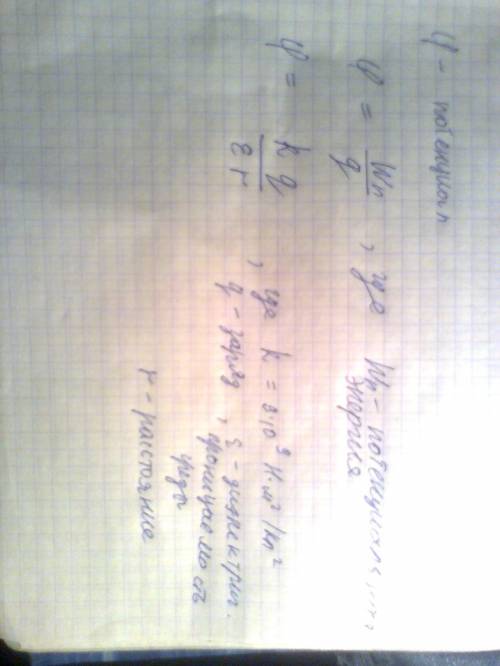 φ - потенциал
φ = Wп / q , где Wп - потенциальная
энергия
φ = k q / ε r , где k = 9·10⁹ Н·м²/кл²
q - заряд , ε - диэлектрич.
проницаемость
среды
r - расстояние